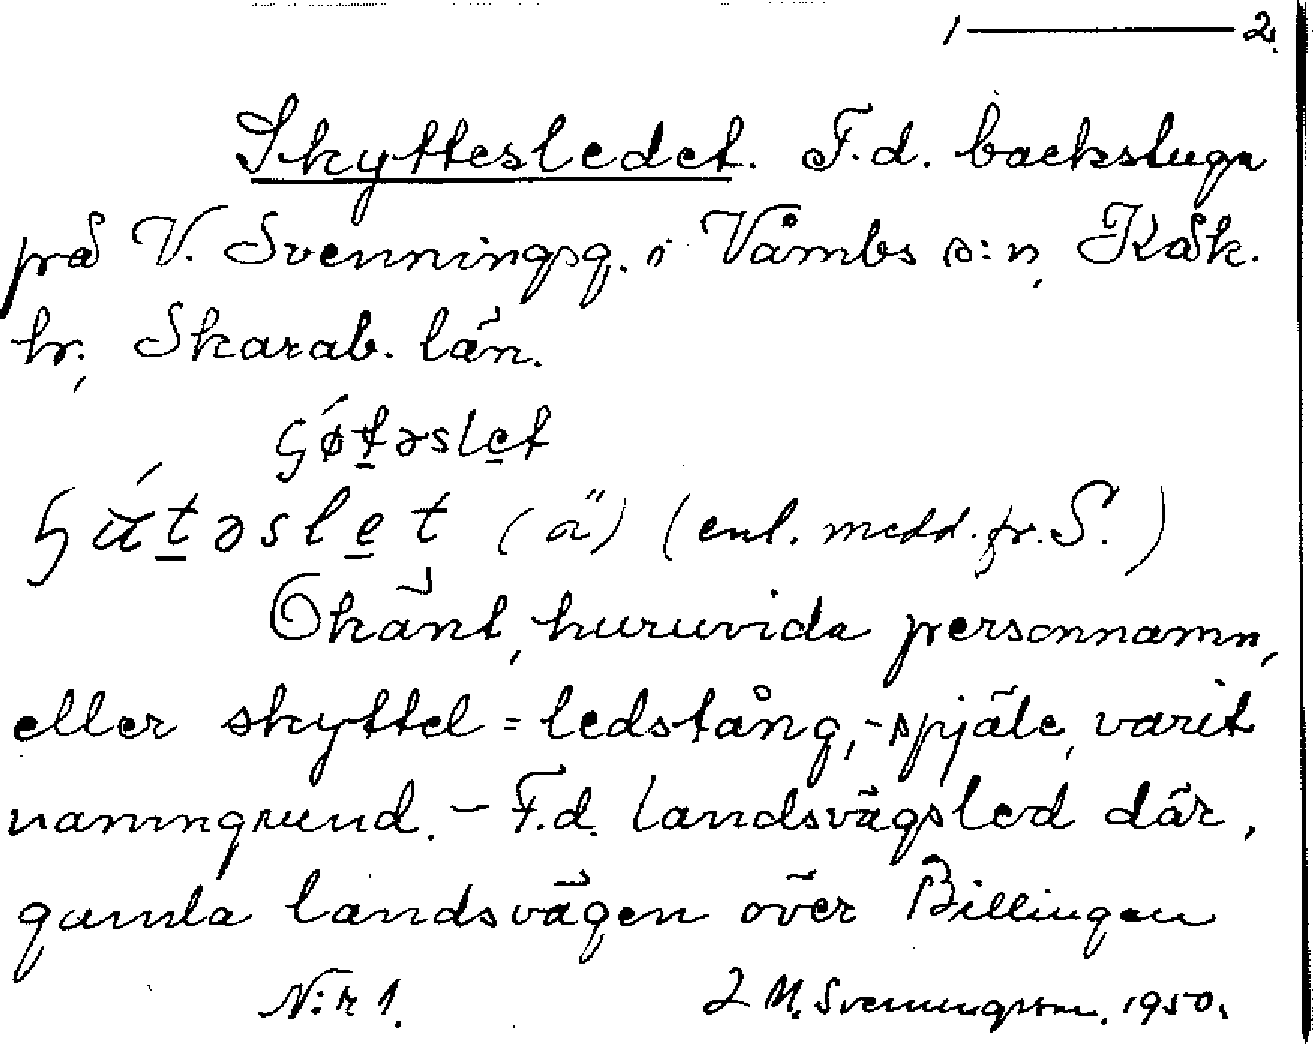 1 — 2.
Skyttesledet. F.d. backstuga
på V. Svenningsg. i Våmbs s:n, Kåk.
hr., Skarab. län.
ʃǿt̲əsle̲t
(ä) (enl. medd. fr. S.)
Okänt, huruvida personnamn,
eller skyttel = ledstång, -spjäle, varit
namngrund. – F.d. landsvägsled där,
gamla landsvägen över Billingen
N:r 1. Svenningsson. 1950.